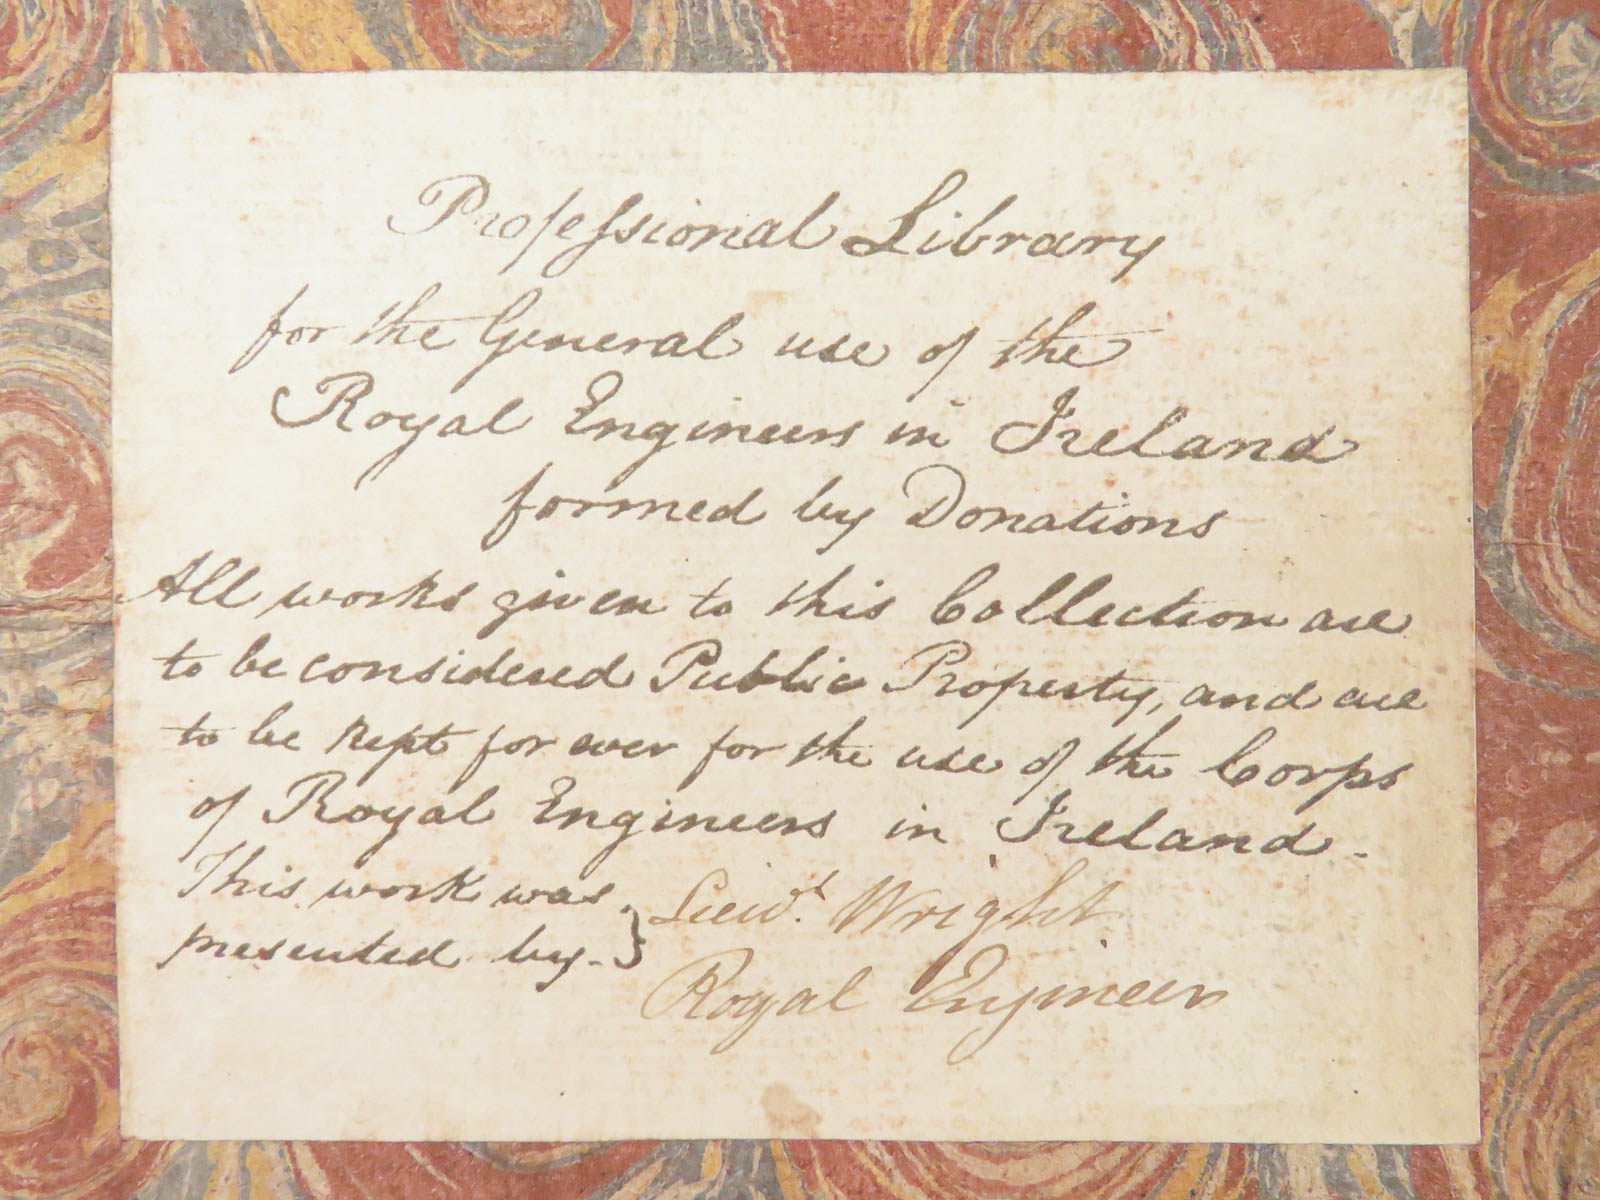 Professional Library
for the General use of the
Royal Engineers in Ireland
formed by Donations
All works given to this Collection are
to be considered Public Property, and are
to be kept for ever for the use of the Corps
of Royal Engineers in Ireland.
This work was } Lieut. Wright
presented by. Royal Engineers